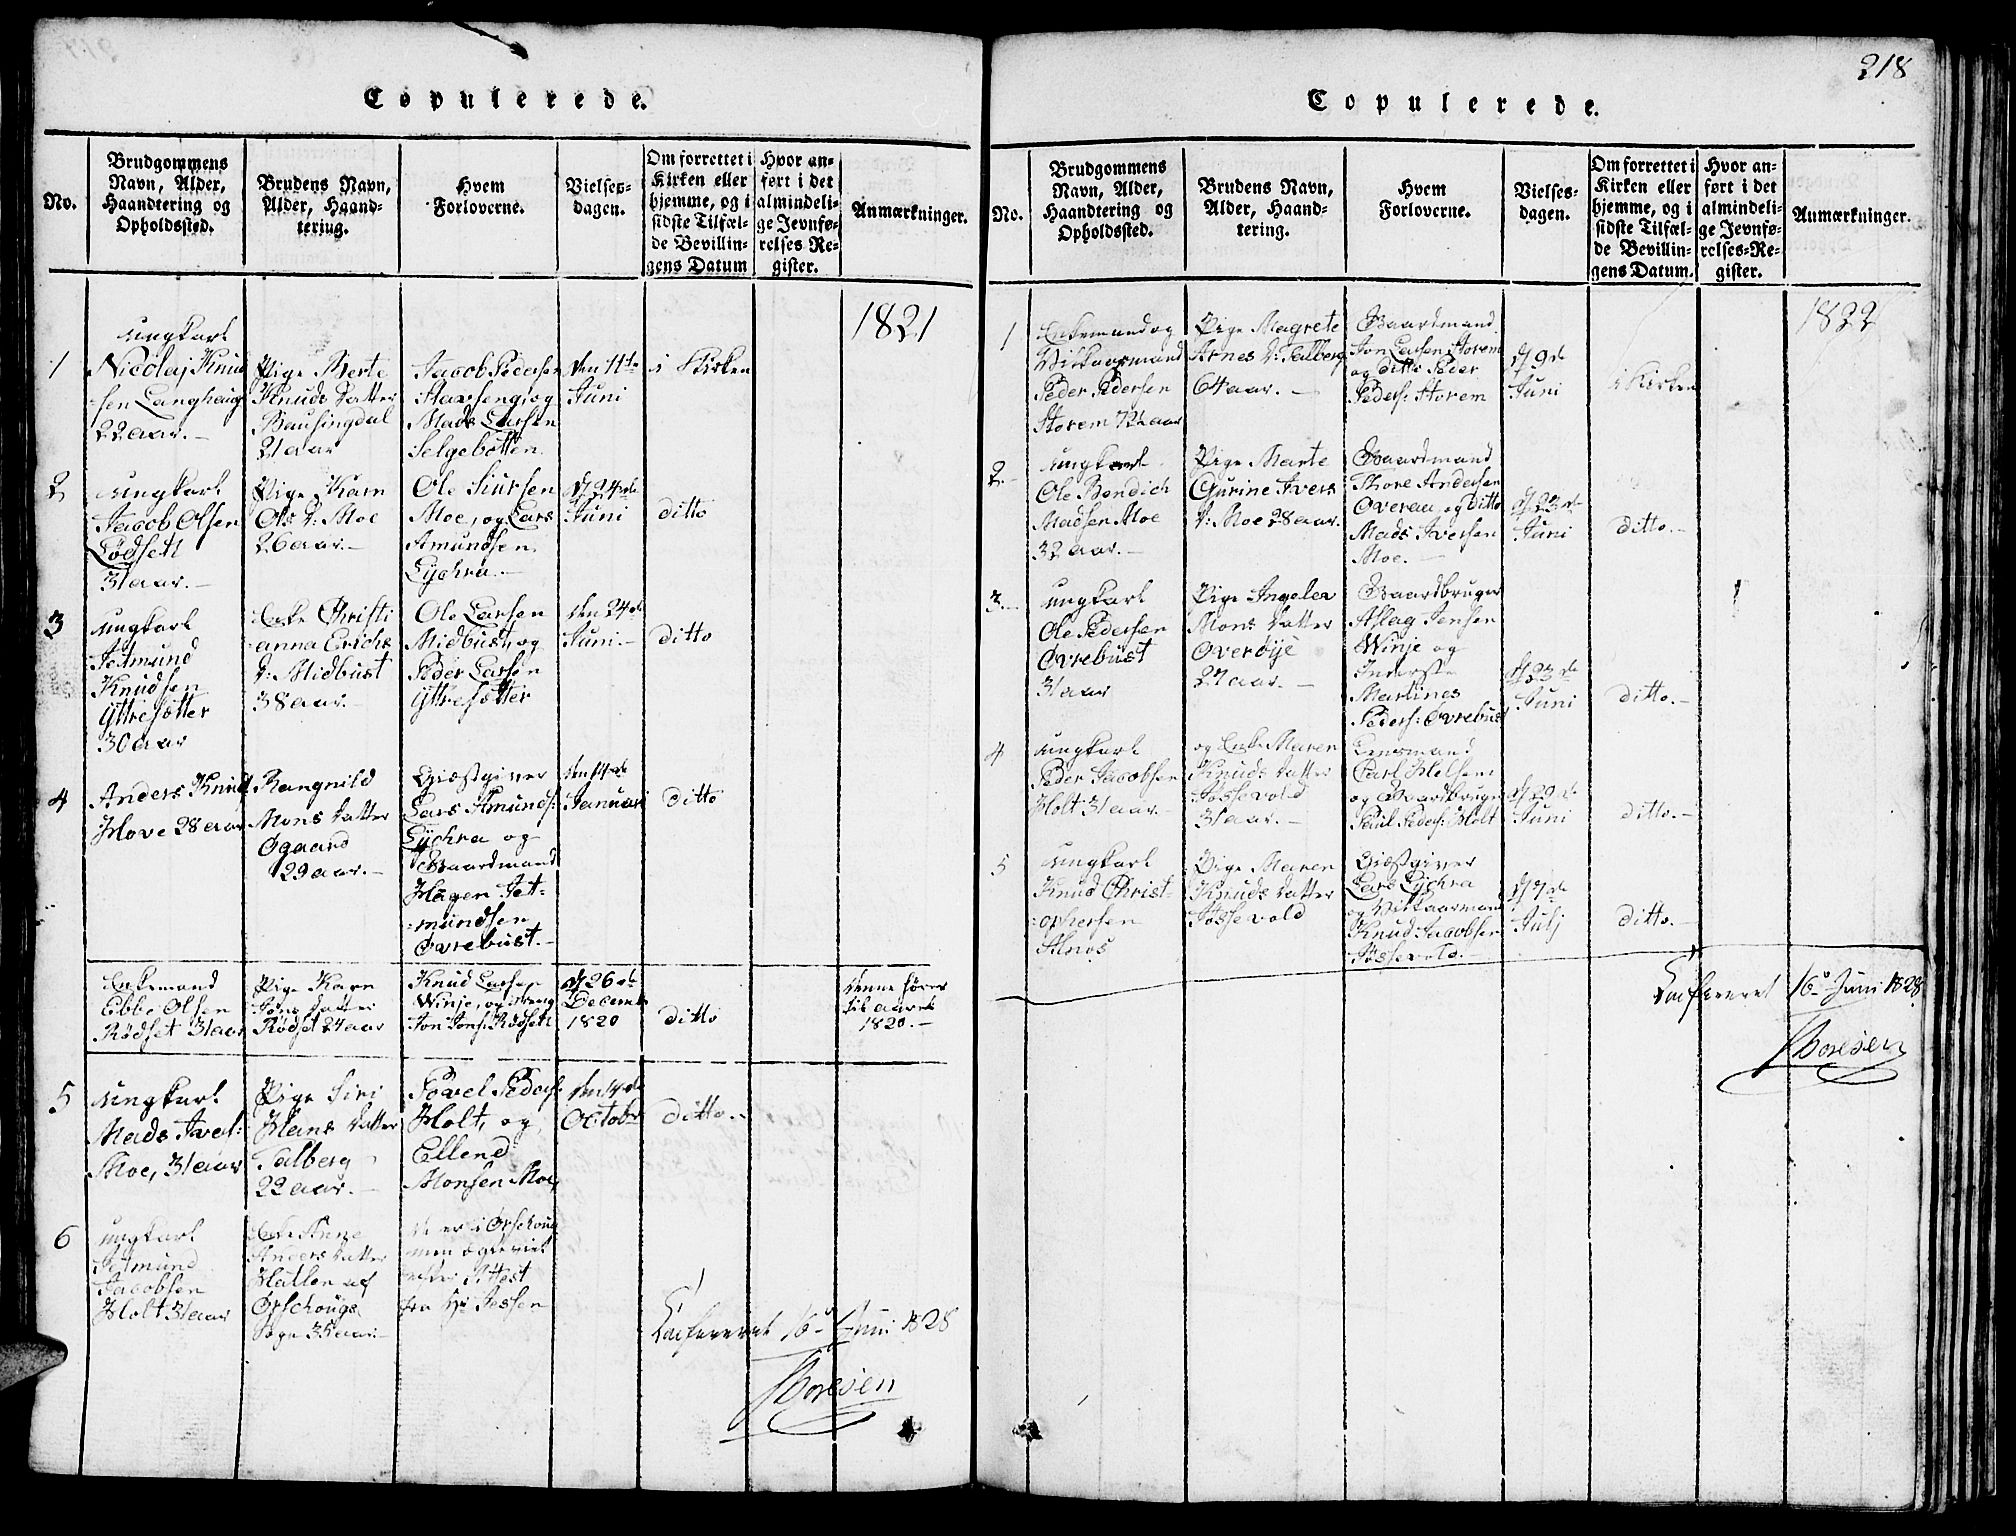 Copulerede.
No.
Brudgommens
Navn, Alder,
Haandtering og
Opholdssted.
Brudens Navn,
Alder, Haand-
tering.
Hvem
Forloverne.
Vielses-
dagen.
Om forrettet i
Kirken eller
hjemme, og i
sidste Tilfæl-
de Bevillin-
gens Datum
Hvor an-
ført i det
almindeli-
ge Jevnfø-
relses Re-
gister.
Anmærkninger.
1821
1
ungkarl
Nicolaj Knud
sen Langhaug
22 aar.-
Pige Berte
Knuds Datter
Bausingdal
21 aar
Jacob Pedersen
og
Mads Larsen
Selgebotten
den 11te
Juni
i Kirken
2
ungkarl
Jacob Olsen
Lödsetl
31 aar.-
Pige Karn
Ols D: Moe
26 aar.-
Ole Siursen
Moe, og Lars
Amundsen
Lychra.-
d 24de
Juni
ditto
3
ungkarl
Jetmund
Knudsen
Yttresætter
30 aar
Enke Christi
anna Erichs
D: Midbust
38 aar.-
Ole Larsen
Midbust, og
Peder Larsen
Yttresætter
den 24de
Juni.-
ditto
4
Anders Knuds
Hove 28 aar
Rangnild
Mons Datter
Ögaard
29 aar.-
Giæstgiver
Lars Amunds:
Lychra og
Gaardmand
Hagen Jet-
mundsen
Övrebust.-
den 14de
Januari
ditto
Enkemand
Ebbe Olsen
Rödset 31 aar
Pige Karn
Jons Datter
Rödset 24 aar
Knud Larsen
Winje, og
Jon Jons: Rödsetl
d 26de
Decemb
1820
ditto
denne hører
til aaret
1820.-
5
ungkarl
Mads Ivers:
Moe, 31 aar
Pige Siri
Hans Datter
Salberg
22 aar.-
Povel Peders:
Holt, og
Ellend
Monsen Moe,
den 14de
Octobr
ditto.-
6
ungkarl
Jetmund
Jacobsen
Holt 31 aar
Enke Anne
Anders Datter
Hatlen af
Örschougs
Sogn 35 aar.-
de er i Örschoug
men ægteviet
efter Attest
fra Hr Jessen
Confereret 16de Juni 1828
Thoresen
218
Copulerede.
No.
Brudgommens
Navn, Alder,
Haandtering og
Opholdssted.
Brudens Navn,
Alder, Haand-
tering.
Hvem
Forloverne.
Vielses-
dagen.
Om forrettet i
Kirken eller
hjemme, og i
sidste Tilfæl-
de Bevillin-
gens Datum.
Hvor an-
ført i det
almindeli-
ge Jevnfø-
relses-Re-
gister.
Anmærkninger.
1822
1
Enkemand og
Vilkaarsmand
Peder Pedersen
Storem 72½ aar
Pige Magrete
Arnes D: Salberg
64 aar.-
Gaardmand
Jon Larsen Storem
og ditto Peder
Peders: Storem
d 9de
Juni
i Kirken
2.-
ungkarl
Ole Bendich
Madsen Moe
32 aar.-
Pige Marte
Gurine Ivers
D: Moe 28 aar.
Gaardmand
Thore Andersen
Overaa, og Ditto
Mads Iversen
Moe.-
d 23de
Juni
ditto.-
3.-
ungkarl
Ole Pedersen
Övrebust
31 aar
Pige Angelev
Mons Datter
Overöije
27 aar.-
Gaardbruger
Aslag Jensen
Winje og
Inderst
Martines
Peders: Övrebust
d 23de
Juni
ditto.-
4
ungkarl
Peder Jacobsen
Holt 31 aar.-
og Enke Maren
Knuds Datter
Fossevold
31 aar.-
Lensmand
Carl
og Gaardbruger
Paul Peders: Holt
d 20de
Juni
ditto.-
5
ungkarl
Knud Christ-
ophersen
Alnos
Pige Maren
Knuds Datter
Fossevold
Giæstgiver
Lars Lychra
og Vilkaarmand
Knud Jacobsen
Fossevold.-
d 7de
Julj
ditto.-
Confereret 16de Juni 1828
Thoresen